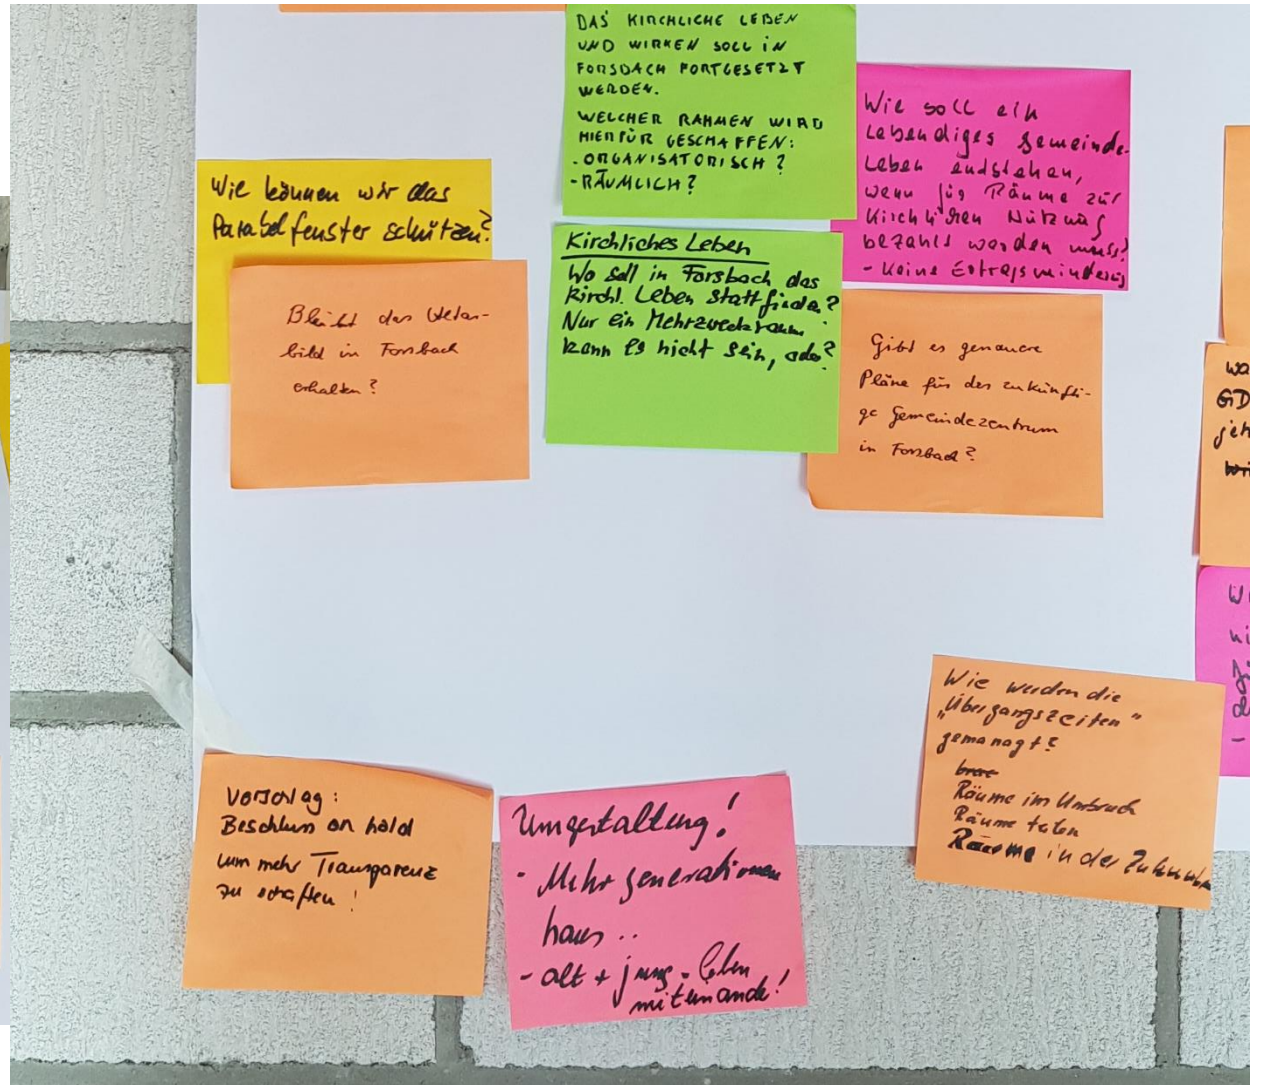 DAS KIRCHLICHE LEBEN
UND WIRKEN SOLL IN
FORSBACH FORTGESETZT
WERDEN.
WELCHER RAHMEN WIRD
HIERFÜR GESCHAFFEN:
- ORGANISATORISCH?
- RÄUMLICH?
Wie soll ein
Lebendiges Gemeinde-
Leben entstehen,
wenn für Räume zur
Kirchlichen Nutzung
bezahlt werden muss?
- Keine Ertragsminderung
Wie können wir das
Parabelfenster schützen?
Kirchliches Leben
Wo soll in Forsbach das
kirchl. Leben stattfinden?
Nur ein Mehrzweckraum
kann es nicht sein, oder?
Bleibt das Altar-
bild in Forsbach
erhalten?
Gibt es genauere
Pläne für das zukünfti-
ge Gemeindezentrum
in Forsbach?
GD
Wie werden die
"Übergangszeiten"
gemanagt?
Räume im Umbruch
Räume teilen
Räume in der Zukunft
Vorschlag:
Beschluss on hold
um mehr Transparenz
zu schaffen!
Umgestaltung!
- Mehrgenerationen
haus..
- alt + jung - leben
miteinander!